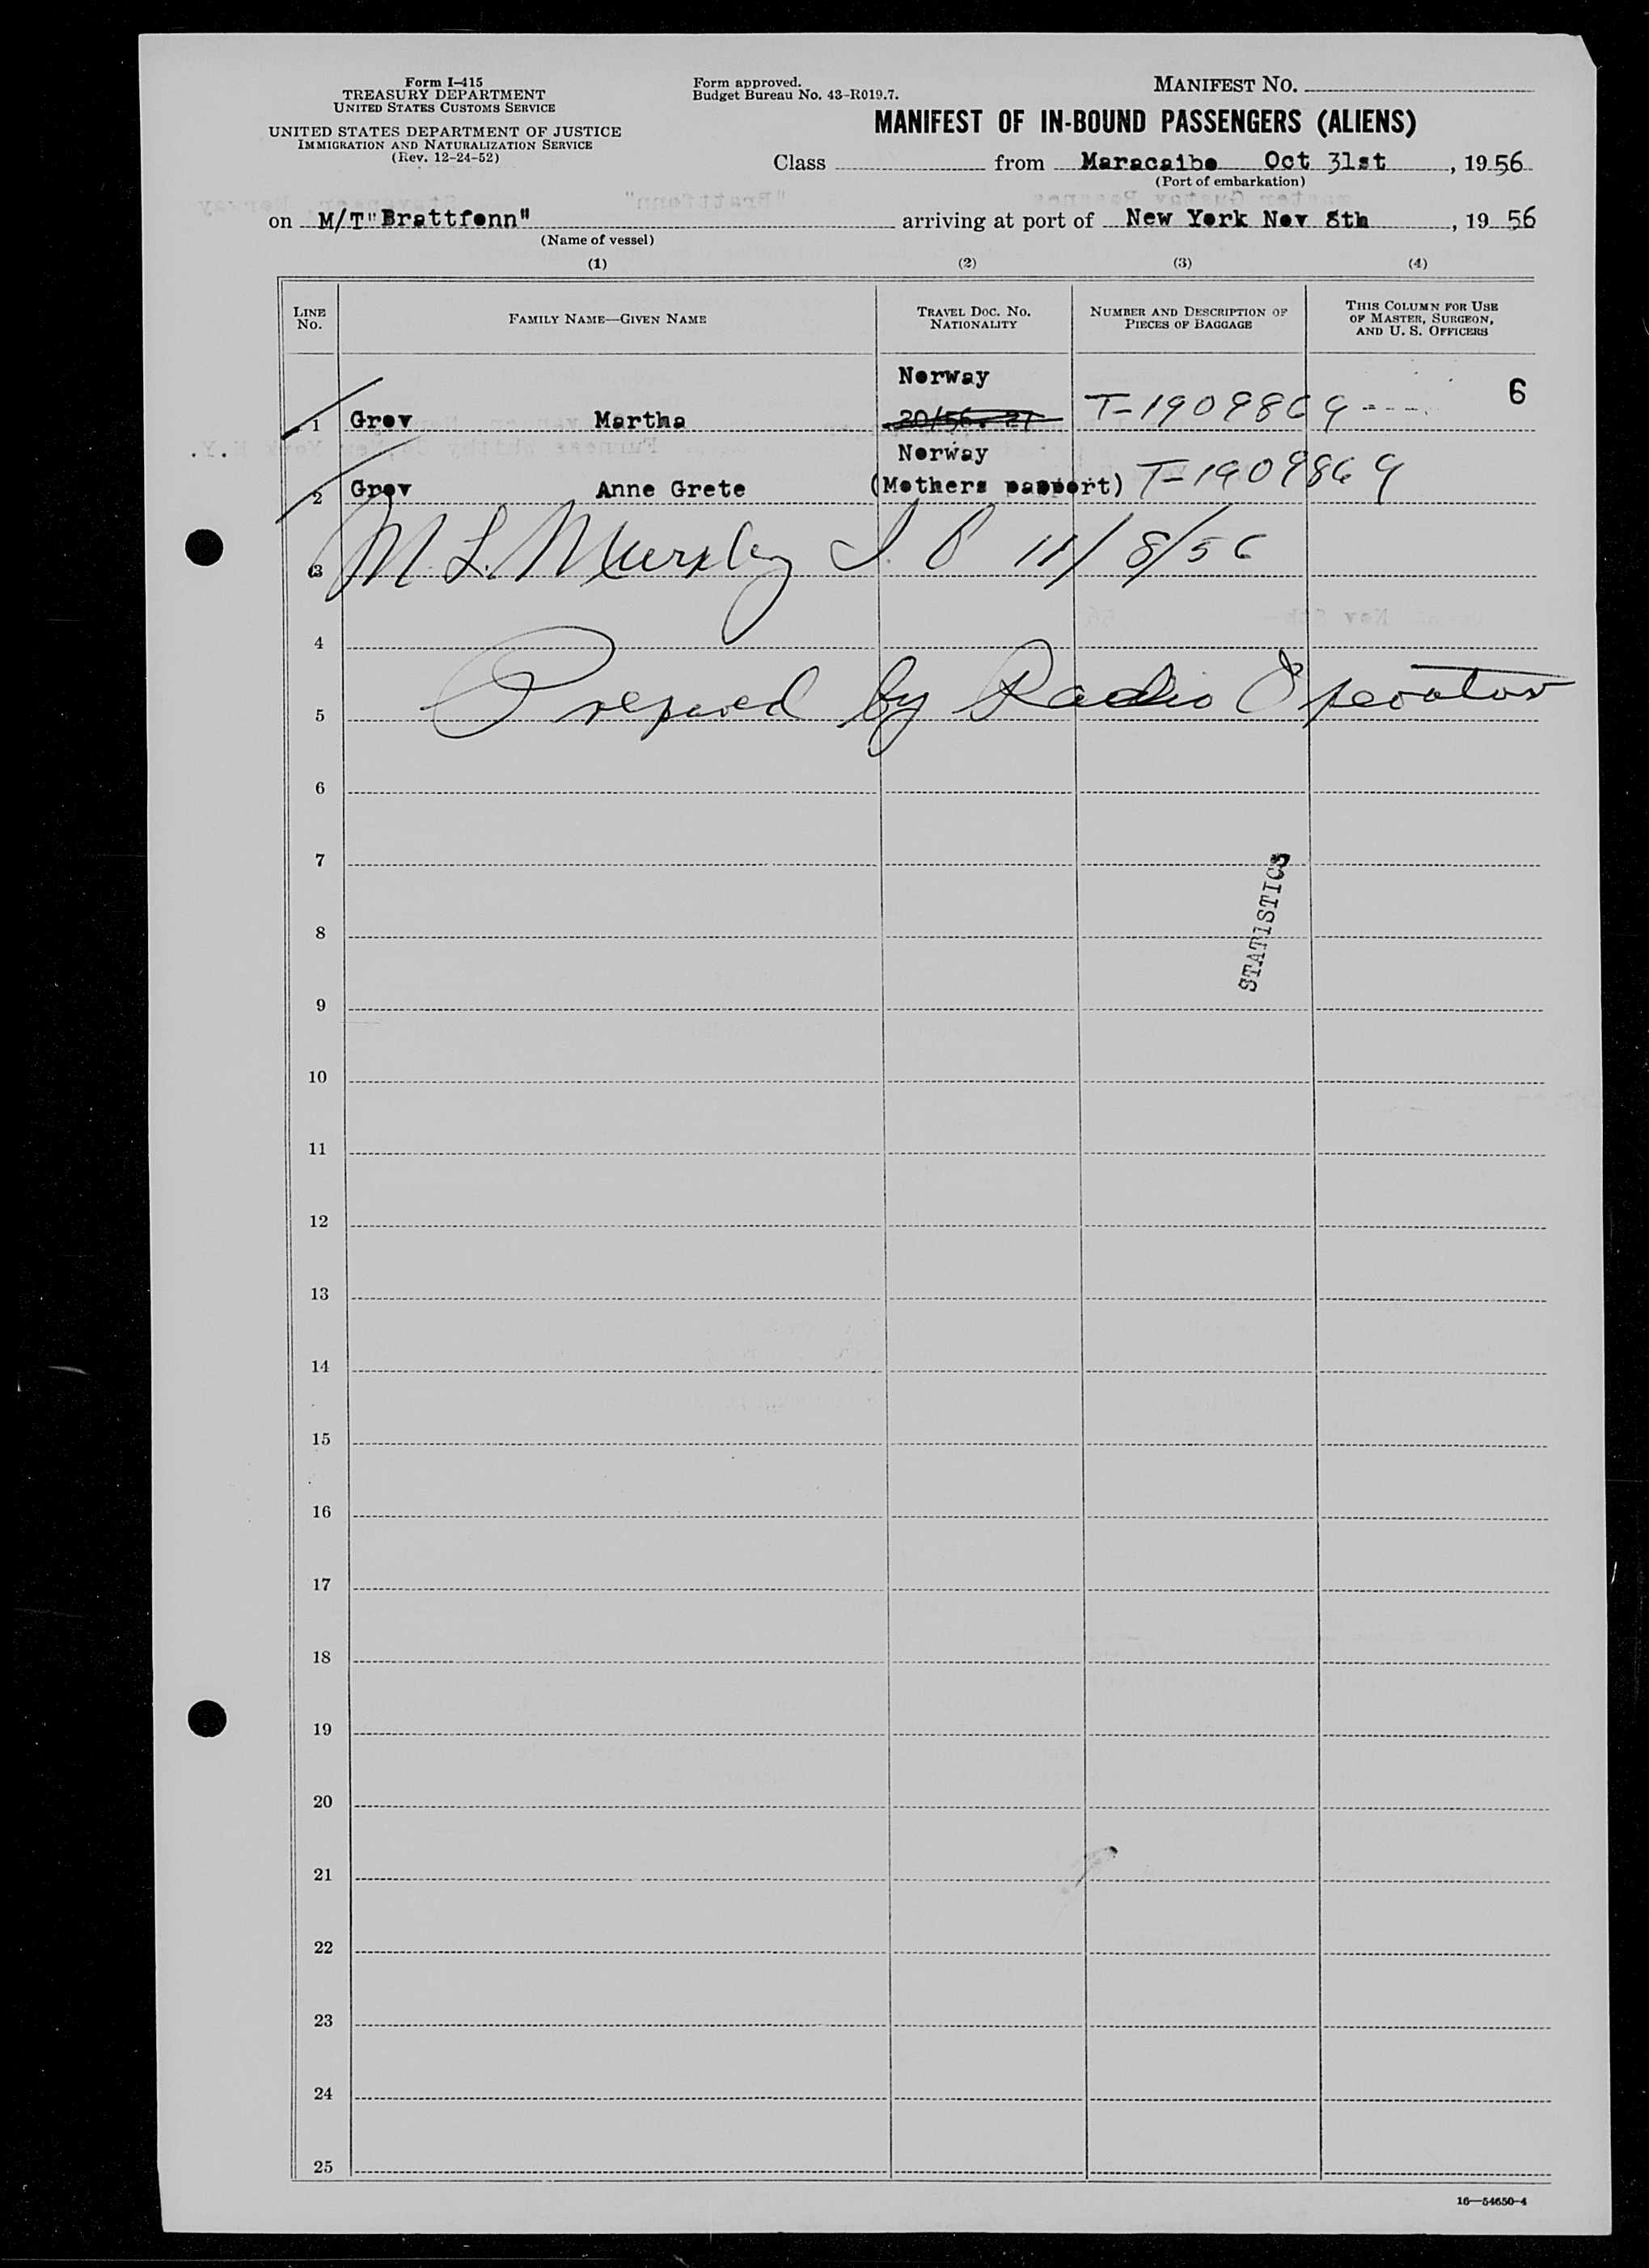 Form I-415
TREASURY DEPARTMENT
UNITED STATES CUSTOMS SERVICE
UNITED STATES DEPARTMENT OF JUSTICE
IMMIGRATION AND NATURALIZATION SERVICE
(Rev. 12-24-52)
Form approved.
Budget Bureau No. 43-R019.7.
MANIFEST NO.
MANIFEST OF IN-BOUND PASSENGERS (ALIENS)
Class from Maracaibo Oct 31st, 1956
(Port of embarkation)
on M/T "Brattfonn" arriving at port of New York Nov 8th, 1956
(Name of vessel)
(1) (2) (3) (4)
LINE NO. FAMILY NAME—GIVEN NAME TRAVEL DOC. NO. NATIONALITY NUMBER AND DESCRIPTION OF PIECES OF BAGGAGE THIS COLUMN FOR USE OF MASTER, SURGEON, AND U. S. OFFICERS
Norway 6
1 Grov Martha T-1909869
Norway
2 Grov Anne Grete (Mothers pasport) T-1909869
3 M. L. Murphy I. O 11/8/56
4
5 Prepared by Radio Operator
6
7
8
STATISTICS
9
10
11
12
13
14
15
16
17
18
19
20
21
22
23
24
25
16—54650-4